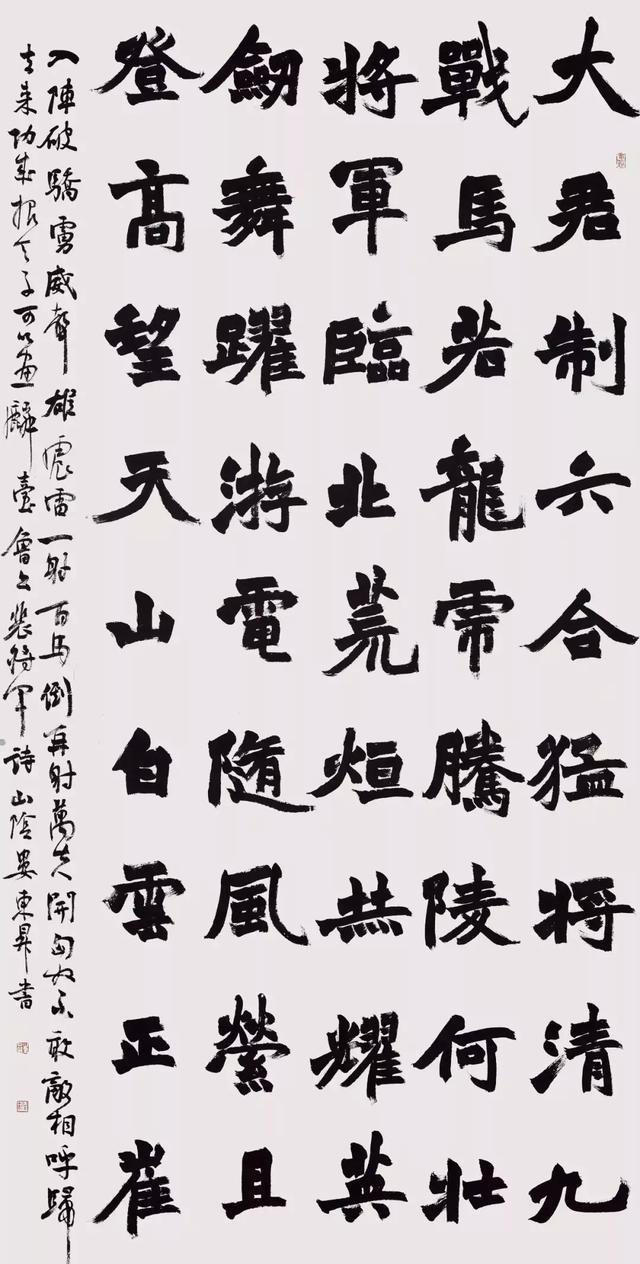 大君制六合猛將清九
戰馬若龍虎騰陵何壯
將軍臨北荒烜赫耀英
劒舞躍游電隨風縈且
登高望天山白雲正崔
入陣破驕虜威聲雄震雷一射百馬倒再射萬夫開匈奴不敢敵相呼歸
去來功成報天子可以畫麟臺魯公裴將軍詩山陰婁東昇書